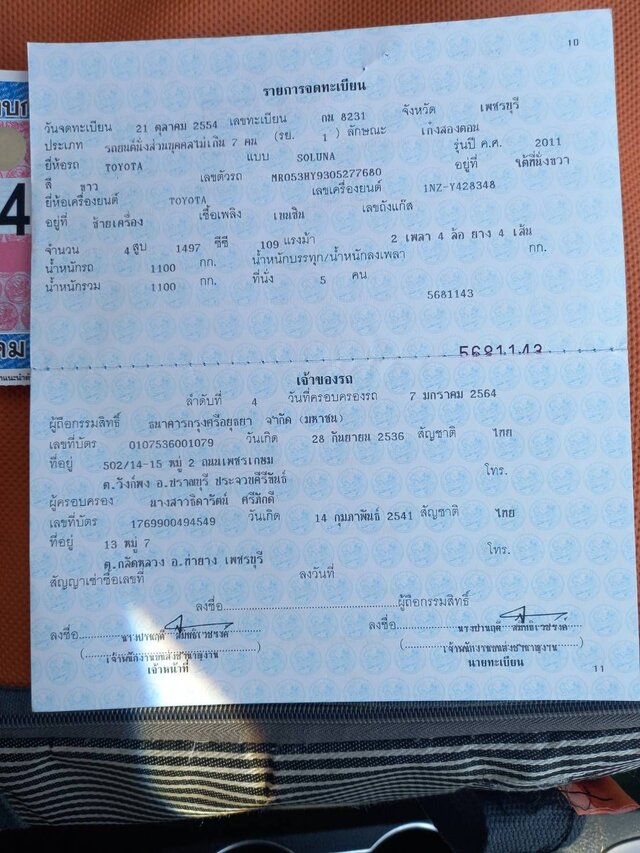 10
รายการจดทะเบียน
วันจดทะเบียน 21 ตุลาคม 2554 เลขทะเบียน กน 8231 จังหวัด เพชรบุรี
ประเภท รถยนต์นั่งส่วนบุคคลไม่เกิน 7 คน (รย. 1) ลักษณะ เก๋งสองตอน
ยี่ห้อรถ TOYOTA แบบ SOLUNA รุ่นปี ค.ศ. 2011
สี ขาว เลขตัวรถ MR053HY9305277680 อยู่ที่ ใต้ที่นั่งขวา
ยี่ห้อเครื่องยนต์ TOYOTA เลขเครื่องยนต์ 1NZ-Y428348
อยู่ที่ ซ้ายเครื่อง เชื้อเพลิง เบนซิน เลขถังแก๊ส
จำนวน 4 สูบ 1497 ซีซี 109 แรงม้า 2 เพลา 4 ล้อ ยาง 4 เส้น
น้ำหนักรถ 1100 กก. น้ำหนักบรรทุก/น้ำหนักลงเพลา กก.
น้ำหนักรวม 1100 กก. ที่นั่ง 5 คน
5681143
5681143
เจ้าของรถ
ลำดับที่ 4 วันที่ครอบครองรถ 7 มกราคม 2564
ผู้ถือกรรมสิทธิ์ ธนาคารกรุงศรีอยุธยา จำกัด (มหาชน)
เลขที่บัตร 0107536001079 วันเกิด 28 กันยายน 2536 สัญชาติ ไทย
ที่อยู่ 502/14-15 หมู่ 2 ถนนเพชรเกษม
ต.วังก์พง อ.ปราณบุรี ประจวบคีรีขันธ์ โทร.
ผู้ครอบครอง นางสาวธิดารัตน์ ศรีภักดี
เลขที่บัตร 1769900494549 วันเกิด 14 กุมภาพันธ์ 2541 สัญชาติ ไทย
ที่อยู่ 13 หมู่ 7
ต.กลัดหลวง อ.ท่ายาง เพชรบุรี โทร.
สัญญาเช่าซื้อเลขที่ ลงวันที่
ลงชื่อ ผู้ถือกรรมสิทธิ์
ลงชื่อ ลงชื่อ
เจ้าหน้าที่ นายทะเบียน
11
4